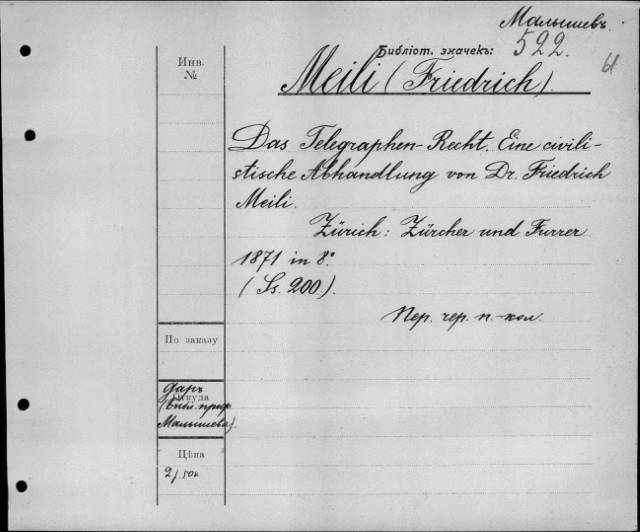 Малышевъ.
Библіот. значекъ: 522.
Инв.
№
Meili (Friedrich).
Das Telegraphen-Recht. Eine civili-
stische Abhandlung von Dr. Friedrich
Meili.
Zürich: Zürcher und Furrer
1871 in 8°.
(Ss. 200).
Пер. чер. п.-кол.
По заказу
Откуда
даръ
(библ. проф.
Малышева).
Цѣна
2 р. 50 к